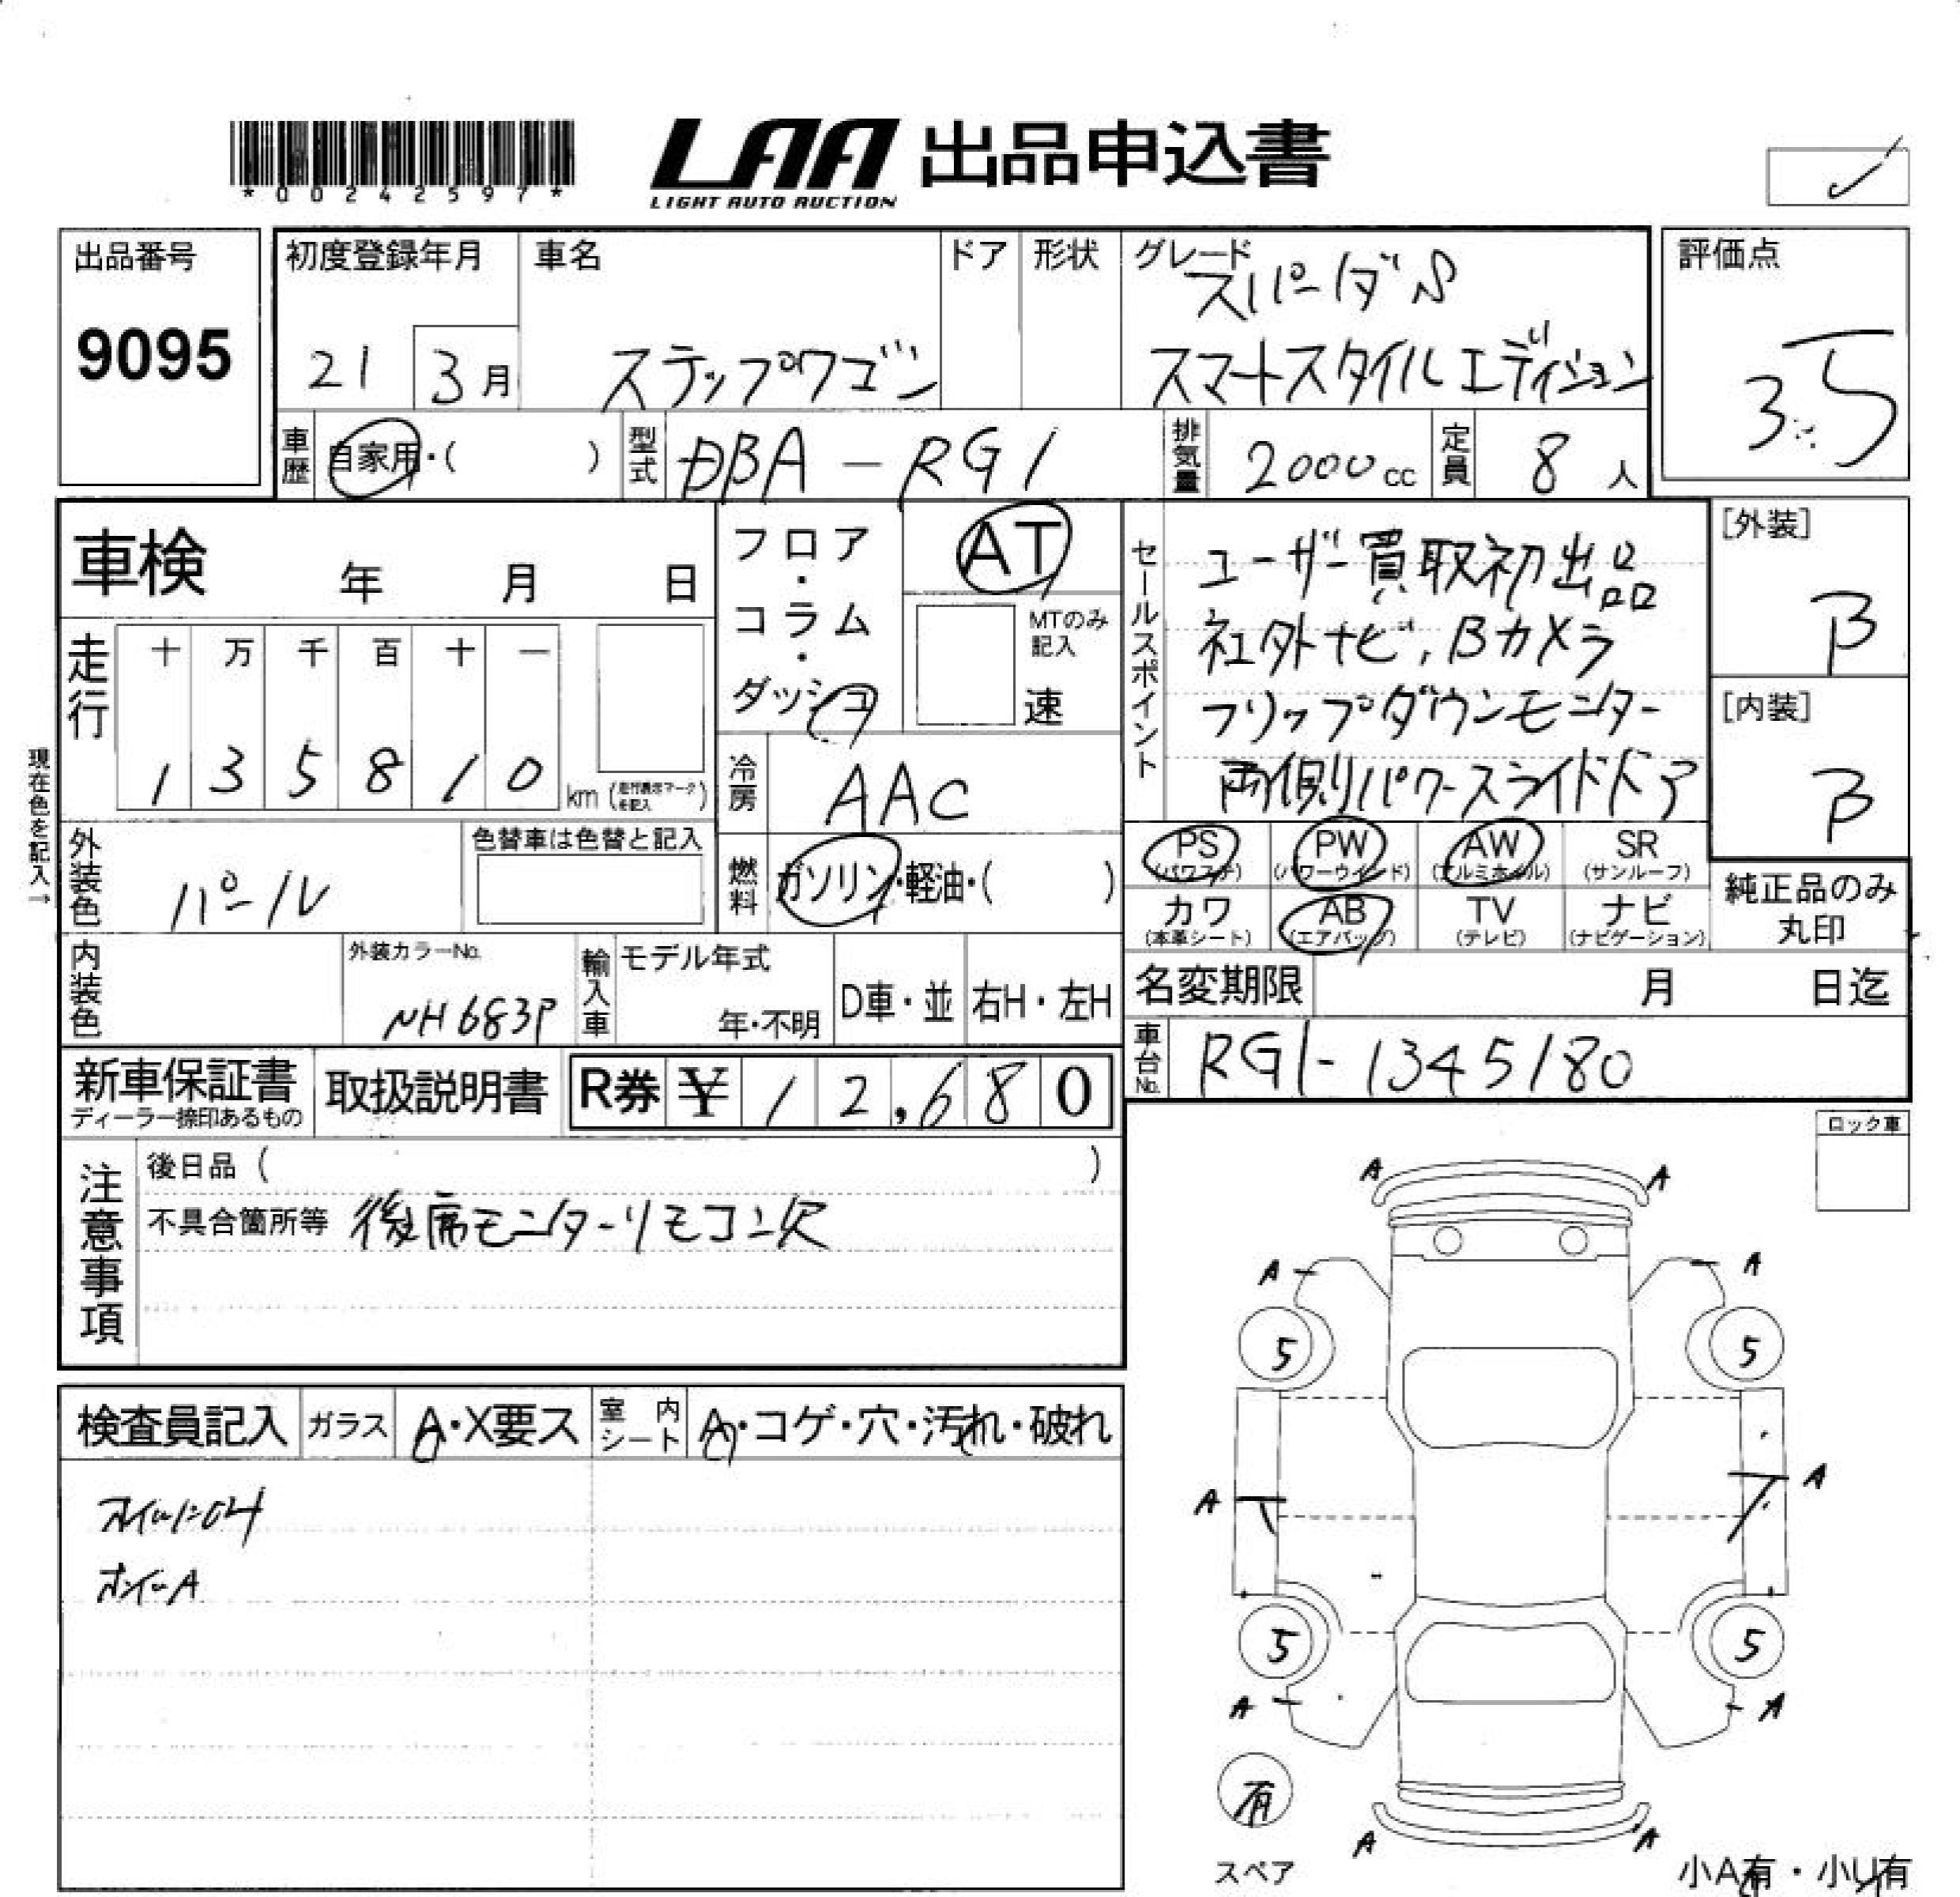 *00242597*
LAA 出品申込書
LIGHT AUTO AUCTION
出品番号
9095
初度登録年月
21 3月
車名
ステップワゴン
ドア
形状
グレード
スパーダS
スマートスタイルエディション
評価点
3.5
車歴
自家用・( )
型式
DBA-RG1
排気量
2000cc
定員
8人
車検 年 月 日
フロア・コラム・ダッシュ
AT
MTのみ記入
速
セールスポイント
ユーザー買取初出品
社外ナビ,Bカメラ
フリップダウンモニター
両側パワースライドドア
[外装]
B
[内装]
B
走行
十 万 千 百 十 一
1 3 5 8 1 0 km
現在色を記入→
冷房
AAC
外装色
パール
色替車は色替と記入
燃料
ガソリン・軽油・( )
PS PW AW SR
(パワステ) (パワーウインド) (アルミホイル) (サンルーフ)
カワ AB TV ナビ
(本革シート) (エアバッグ) (テレビ) (ナビゲーション)
純正品のみ
丸印
内装色
外装カラーNo.
NH683P
輸入車
モデル年式
年・不明
D車・並
右H・左H
名変期限 月 日迄
車台No.
RG1-1345180
新車保証書
ディーラー捺印あるもの
取扱説明書
R券 ¥ 12,680
ロック車
注意事項
後日品 ( )
不具合箇所等 後席モニターリモコン欠
検査員記入 ガラス A・X要ス 室内シート A・コゲ・穴・汚れ・破れ
A A
A A
5 5
A A
5 5
A A
有
A A
スペア
小A有・小U有